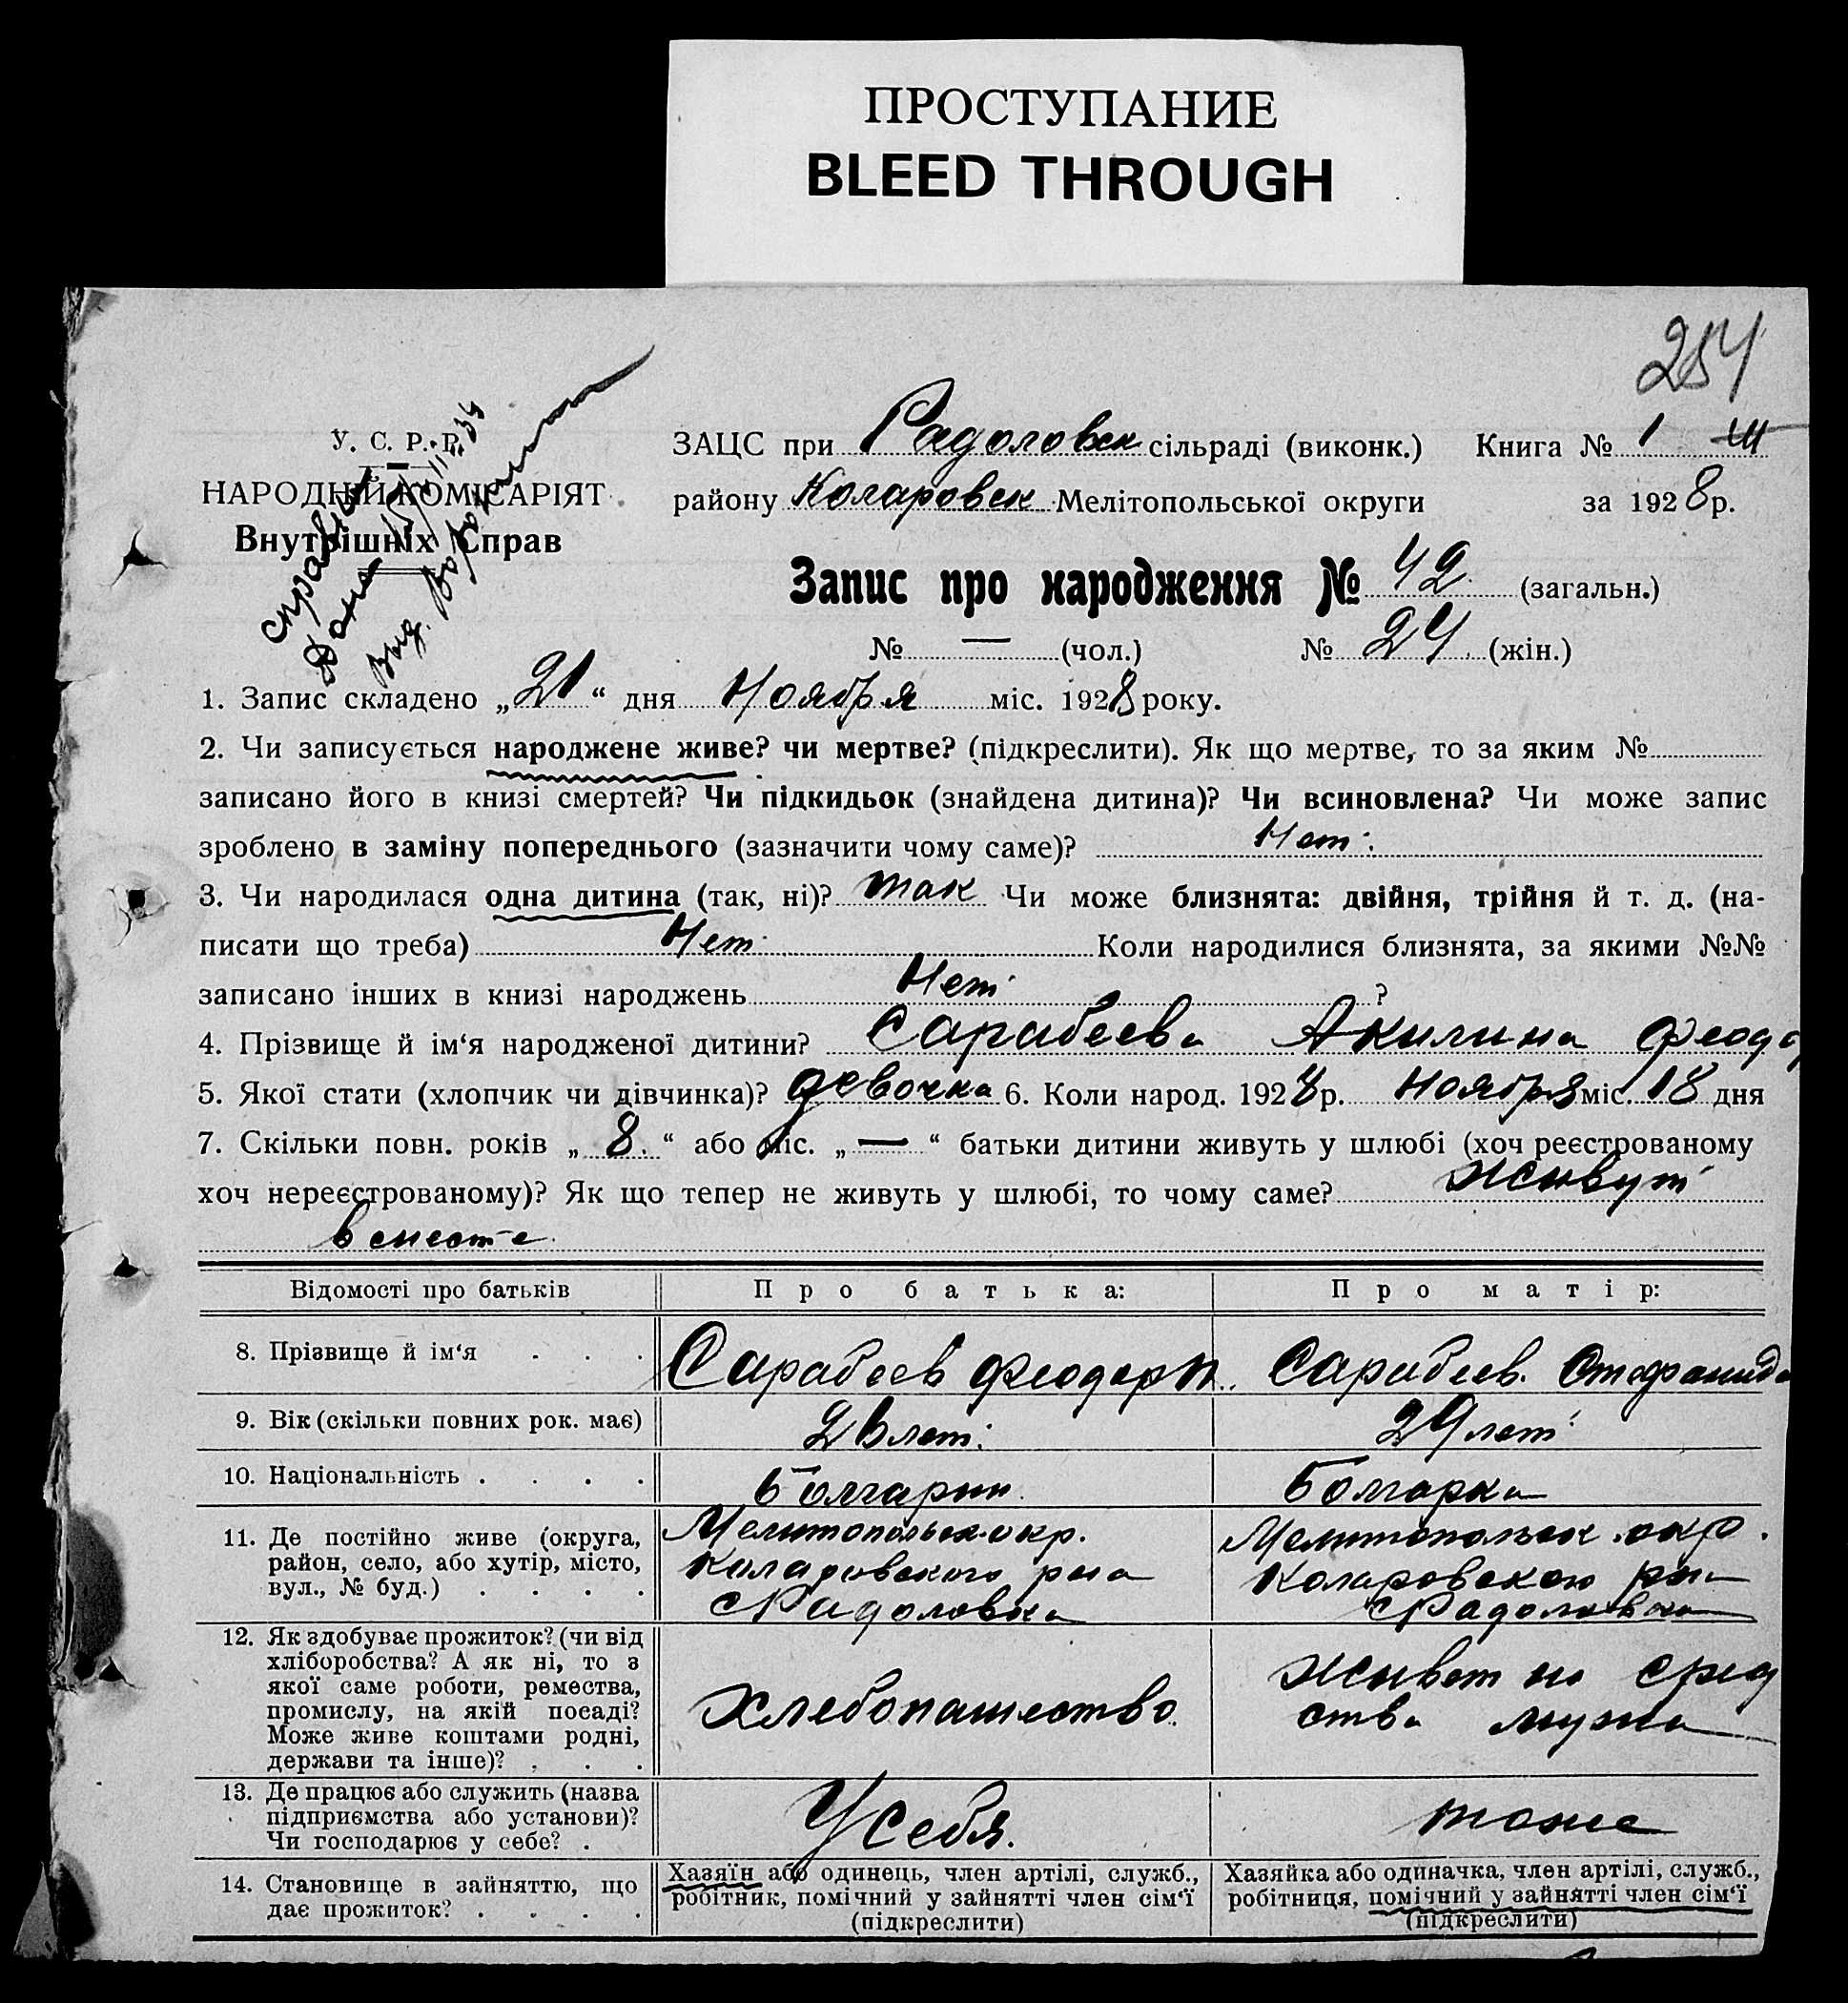 ПРОСТУПАНИЕ
BLEED THROUGH
254
У. С. Р. Р.
НАРОДНІЙ КОМІСАРІЯТ
Внутрішніх Справ
справка
Дана
Выд.
ЗАЦС при Радоловск сільраді (виконк.) Книга № 1
району Коларовск Мелітопольської округи за 1928 р.
Запис про народження № 42 (загальн.)
№ — (чол.) № 24 (жін.)
1. Запис складено „21“ дня Ноября міс. 1928 року.
2. Чи записується народжене живе? чи мертве? (підкреслити). Як що мертве, то за яким №
записано його в книзі смертей? Чи підкидьок (знайдена дитина)? Чи всиновлена? Чи може запис
зроблено в заміну попереднього (зазначити чому саме)? Нет
3. Чи народилася одна дитина (так, ні)? так Чи може близнята: двійня, трійня й т. д. (на-
писати що треба) Нет Коли народилися близнята, за якими №№
записано інших в книзі народжень Нет ?
4. Прізвище й ім‘я народженої дитини? Сарабеева Акилина Феодо
5. Якої стати (хлопчик чи дівчинка)? девочка 6. Коли народ. 1928 р. Ноября міс. 18 дня
7. Скільки повн. років „8.“ або міс. „—“ батьки дитини живуть у шлюбі (хоч реєстрованому
хоч нереєстрованому)? Як що тепер не живуть у шлюбі, то чому саме? живут
вместе
Відомості про батьків Про батька: Про матір:
8. Прізвище й ім‘я . . . Сарабеев Феодор П. Сарабеев. Стефанида
9. Вік (скільки повних рок. має) лет 29 лет
10. Національність . . . . Болгарин Болгарка
11. Де постійно живе (округа,
район, село, або хутір, місто,
вул., № буд.) . . . .
Мелитопольск. окр.
Коларовского р-на
с Радоловка
Мелитопольск. окр.
Коларовского р-на
с Радоловка
12. Як здобуває прожиток? (чи від
хліборобства? А як ні, то з
якої саме роботи, ремества,
промислу, на якій посаді?
Може живе коштами родні,
держави та інше)? . . .
Хлебопашество
живет на сред
ства мужа
13. Де працює або служить (назва
підприємства або установи)?
Чи господарює у себе? .
У себя.
тоже
14. Становище в зайняттю, що
дає прожиток? . . . .
Хазяїн або одинець, член артілі, служб.,
робітник, помічний у зайнятті член сім‘ї
(підкреслити)
Хазяйка або одиначка, член артілі, служб.,
робітниця, помічний у зайнятті член сім‘ї
(підкреслити)